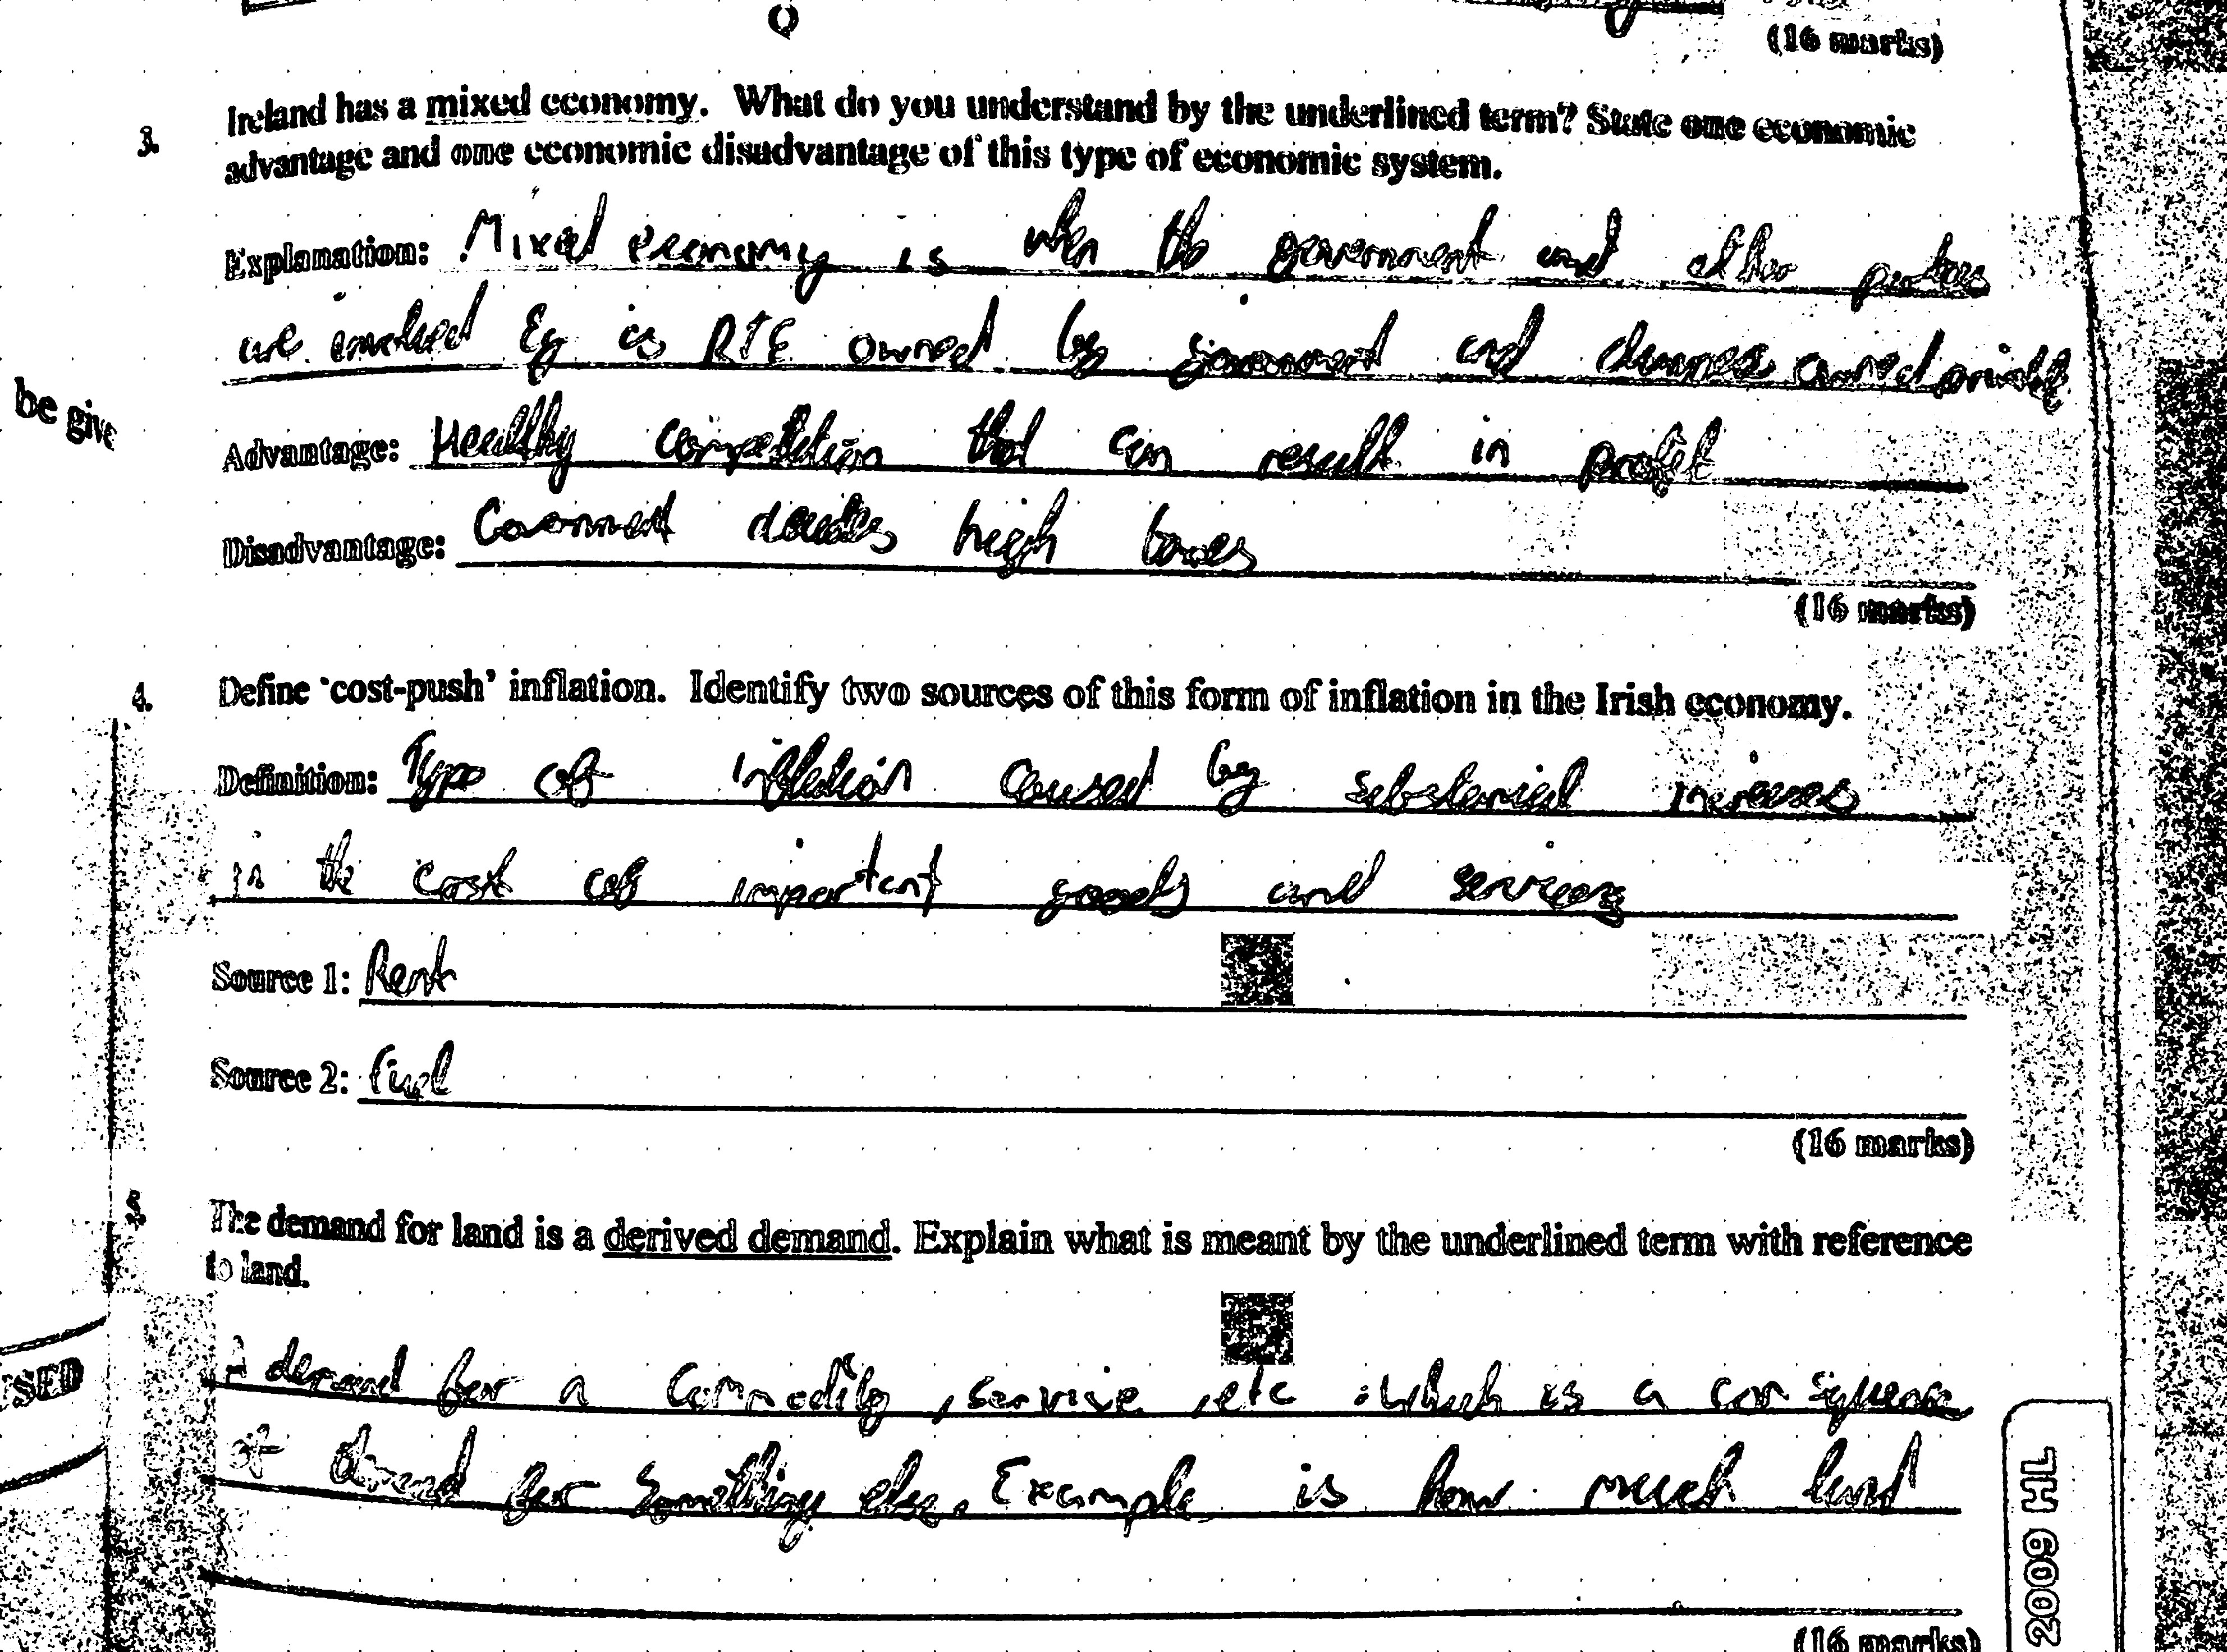 (16 marks)
3. Ireland has a mixed economy. What do you understand by the underlined term? State one economic
advantage and one economic disadvantage of this type of economic system.
Explanation: Mixed economy is when the government and other
are involved Eg is RTE owned by government and owned
be give
Advantage: Healthy competition that can result in profit
Disadvantage: high taxes
(16 marks)
4. Define 'cost-push' inflation. Identify two sources of this form of inflation in the Irish economy.
Definition: Type of inflation caused by increases
in the cost of important goods and services
Source 1: Rent
Source 2: Fuel
(16 marks)
5. The demand for land is a derived demand. Explain what is meant by the underlined term with reference
to land.
A demand for a commodity, service, etc which is a
of demand for something else. Example is how much land
2009 HL
(16 marks)